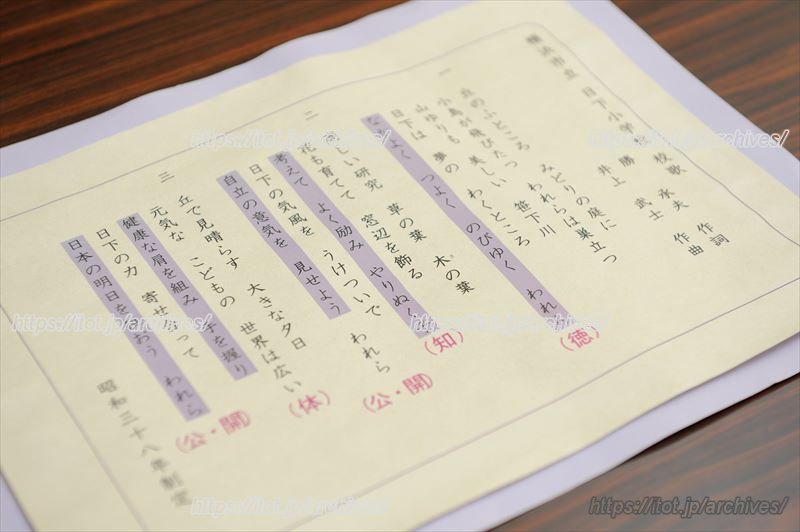 横浜市立 日下小学校 校歌
勝 承夫 作詞
井上 武士 作曲
一
丘のふところ みどりの庭に
小鳥が飛びたつ われらは巣立つ
山ゆりも 美しい 笹下川
日下は 夢の わくところ
なかよく つよく のびゆく われら
(徳)
二
しい 研究 草の葉 木の葉
花も育てて 窓辺を飾る
考えて よく励み やりぬく
(知)
日下の気風を うけついで われら
自立の意気を 見せよう
(公・開)
三
丘で見晴らす 大きな夕日
元気な こどもの 世界は広い
健康な肩を組み 手を握り
(体)
日下の力 寄せあって われら
日本の明日を おう
(公・開)
昭和三十八年制定
https://itot.jp/archives/
https://itot.jp/archives/
https://itot.jp/archives/
https://itot.jp/archives/
https://itot.jp/archives/
https://itot.jp/archives/